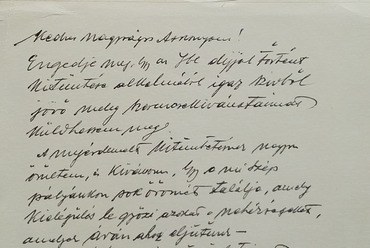 Kedves Nagyságos Asszonyom!
Engedje meg, hogy az Ybl díjjal történt
kitüntetése alkalmából igaz szívből
jövő meleg szerencsekívánataimat
küldhessem meg.
A megérdemelt kitüntetésnek nagyon
örültem, és kívánom, hogy e szép
pályánkon sok örömét találja, amely
kielégülés le győzi azokat a nehézségeket,
amelyek árán eljutunk